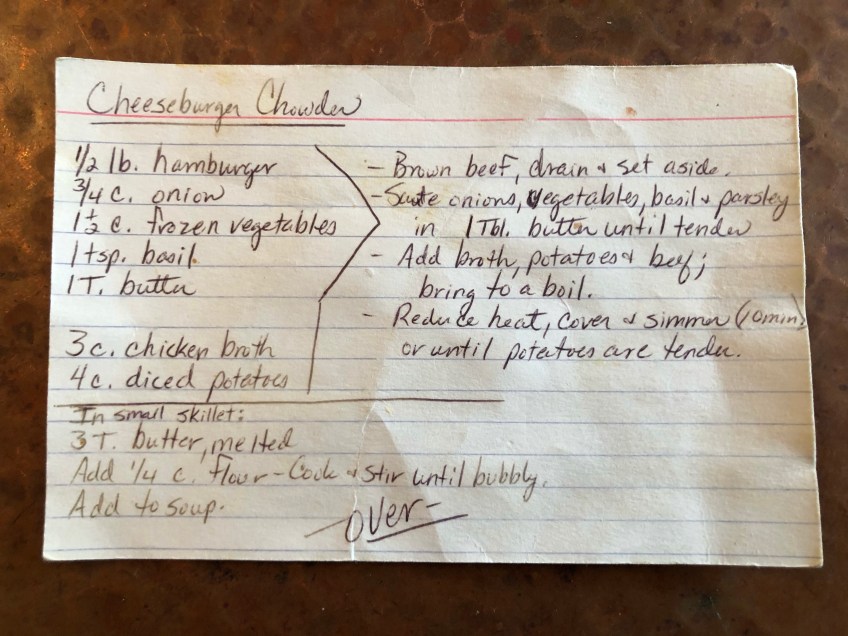 Cheeseburger Chowder
1/2 lb. hamburger
3/4 c. onion
1 1/2 c. frozen vegetables
1 tsp. basil
1 T. butter
3 c. chicken broth
4 c. diced potatoes
- Brown beef, drain & set aside.
- Saute onions, vegetables, basil & parsley
in 1 Tbl. butter until tender
- Add broth, potatoes & beef;
bring to a boil.
- Reduce heat, cover & simmer (10 min)
or until potatoes are tender.
In small skillet:
3 T. butter, melted
Add 1/4 c. flour - Cook & stir until bubbly.
Add to soup.
- over -